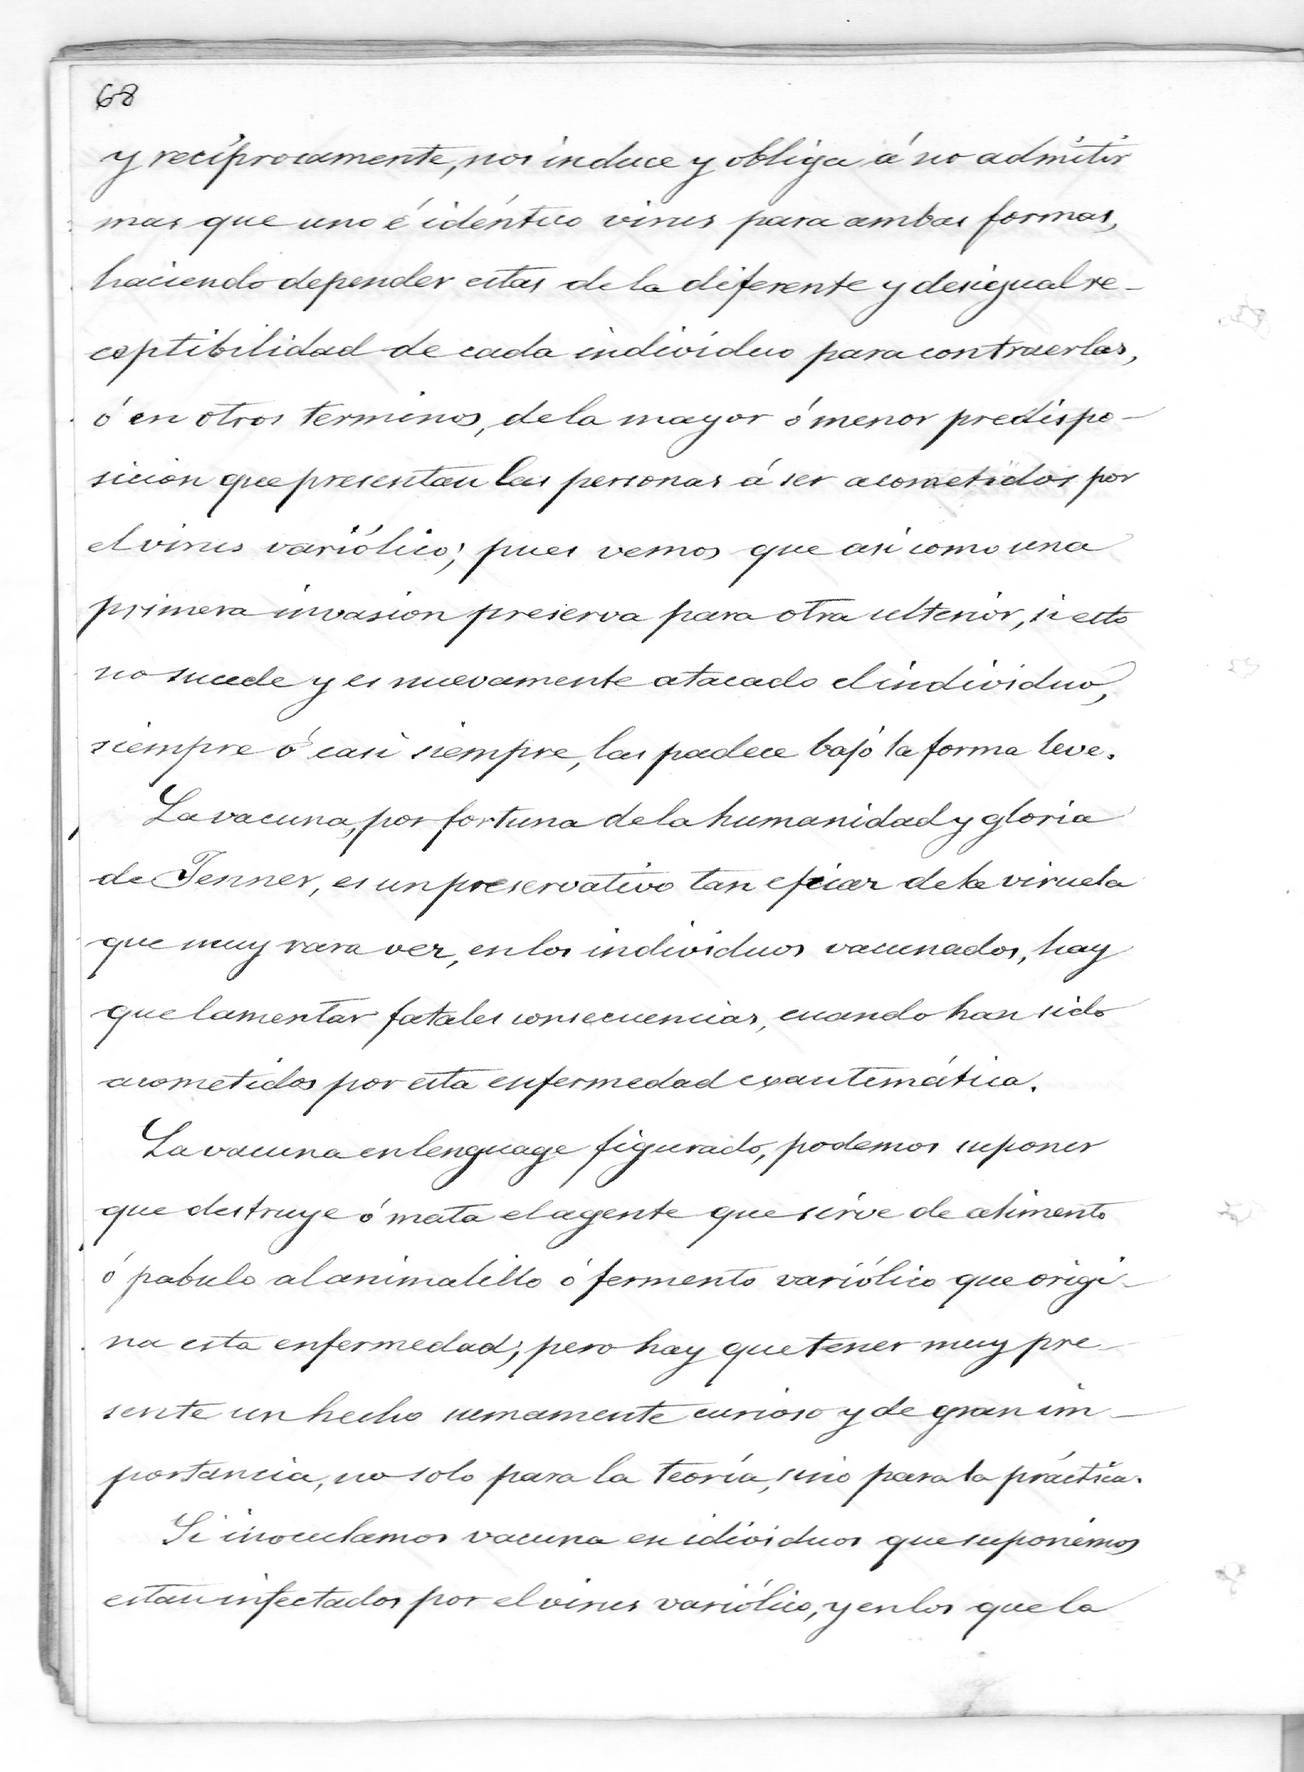 68
y reciprocamente, nos induce y obliga á no admitir
mas que uno é idéntico virus para ambas formas,
haciendo depender estas de la diferente y desigual re-
ceptibilidad de cada individuo para contraerlas,
ó en otros terminos, de la mayor ó menor predispo-
sicion que presentan las personas á ser acometidos por
el virus variólico; pues vemos que asi como una
primera invasion preserva para otra ulterior, si esto
no sucede y es nuevamente atacado el individuo,
siempre ó casi siempre, las padece bajo la forma leve.
La vacuna, por fortuna de la humanidad y gloria
de Jenner, es un preservativo tan eficaz de la viruela
que muy rara vez, en los individuos vacunados, hay
que lamentar fatales consecuencias, cuando han sido
acometidos por esta enfermedad exantemática.
La vacuna en lenguage figurado, podemos suponer
que destruye ó mata el agente que sirve de alimento
ó pabulo al animalillo ó fermento variólico que origi-
na esta enfermedad; pero hay que tener muy pre-
sente un hecho sumamente curioso y de gran im-
portancia, no solo para la teoría, sino para la práctica.
Si inoculamos vacuna en idividuos que suponemos
estan infectados por el virus variólico, y en los que la